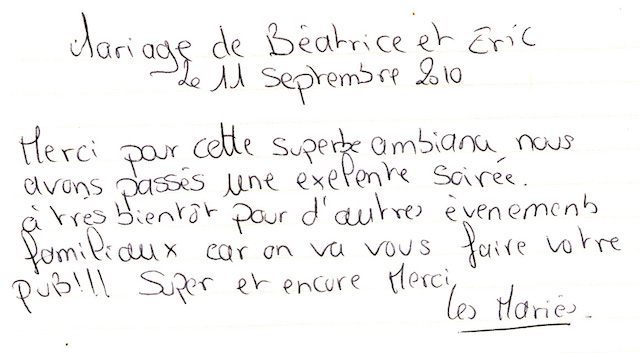 Mariage de Béatrice et Eric
Le 11 Septembre 2010
Merci pour cette superbe ambiance nous
avons passés une exelente soirée.
à très bientôt pour d'autres èvenements
familiaux car on va vous faire votre
pub!!! Super et encore Merci
Les Mariés.